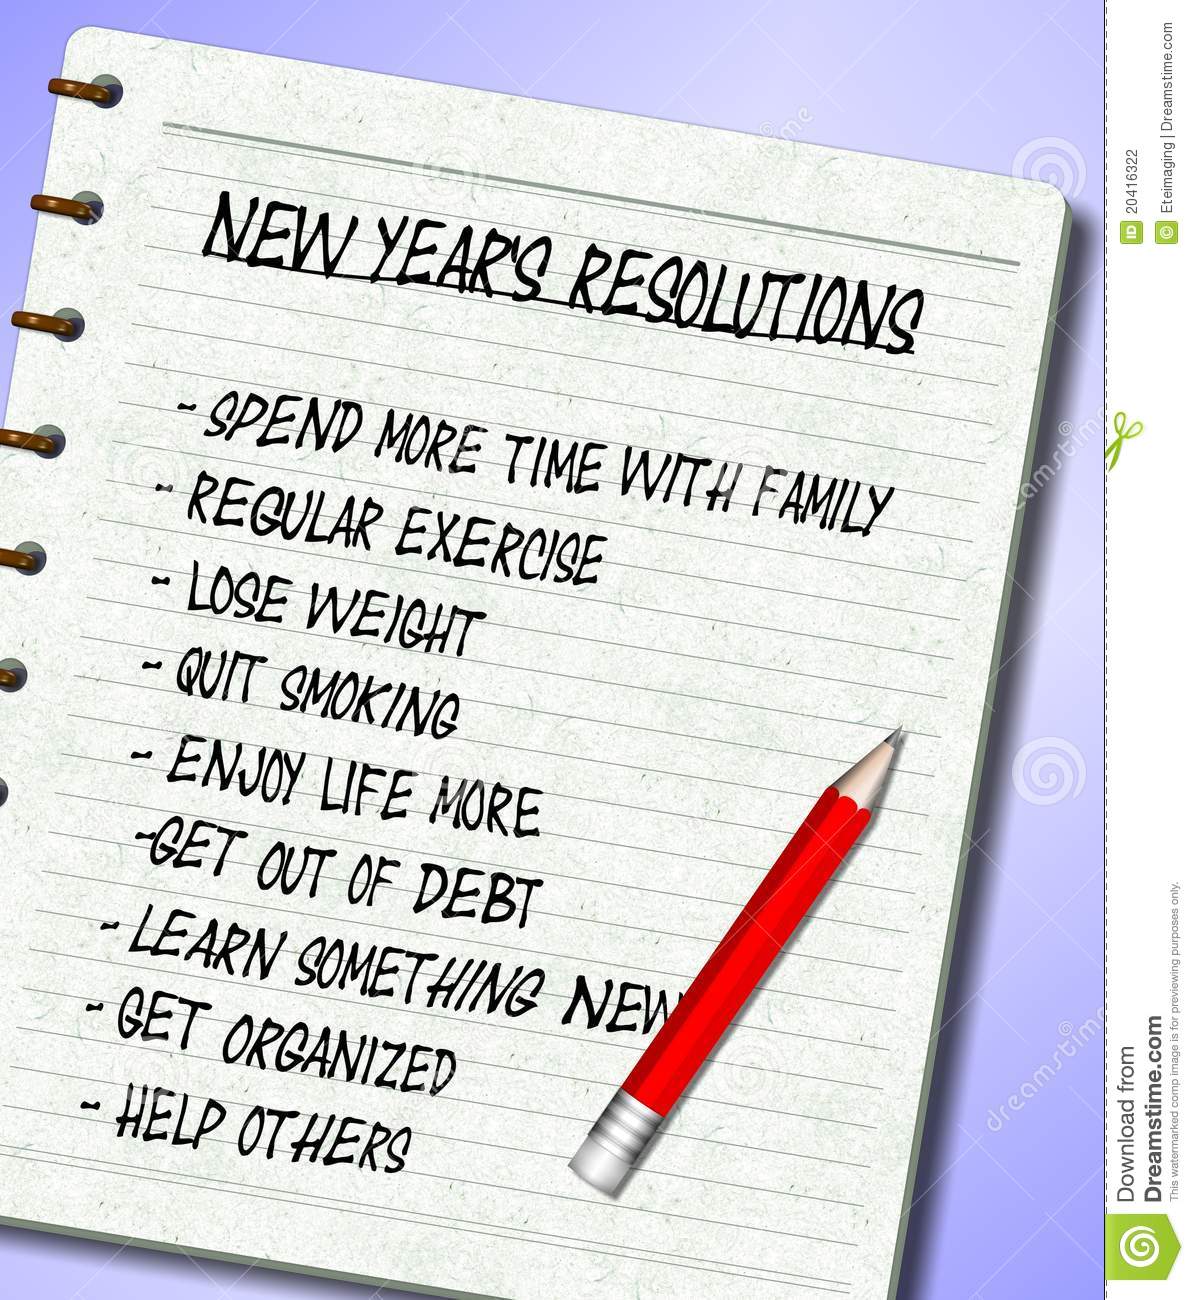 NEW YEAR'S RESOLUTIONS
- SPEND MORE TIME WITH FAMILY
- REGULAR EXERCISE
- LOSE WEIGHT
- QUIT SMOKING
- ENJOY LIFE MORE
-GET OUT OF DEBT
- LEARN SOMETHING NEW
- GET ORGANIZED
- HELP OTHERS
dreamstime
ID 20416322
© Eteimaging | Dreamstime.com
Download from
Dreamstime.com
This watermarked comp image is for previewing purposes only.